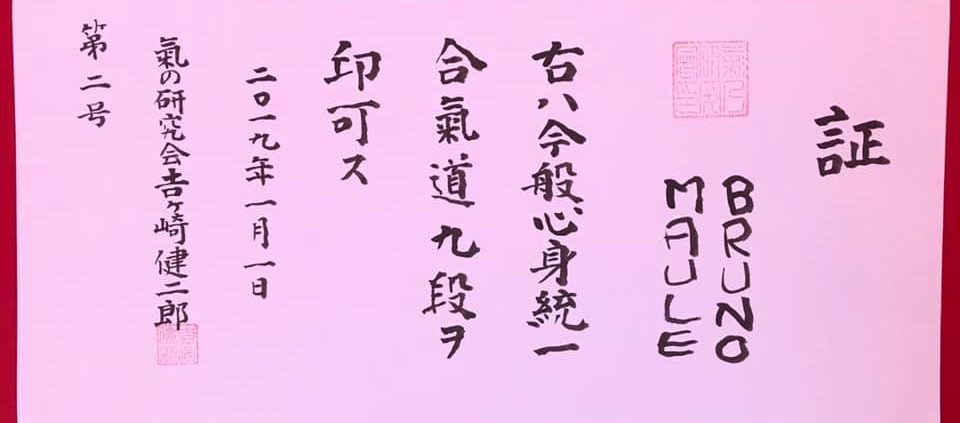 証
BRUNO
MAULE
右ハ今般心身統一
合氣道九段ヲ
印可ス
二〇一九年一月一日
氣の研究会吉ヶ崎健二郎
第二号